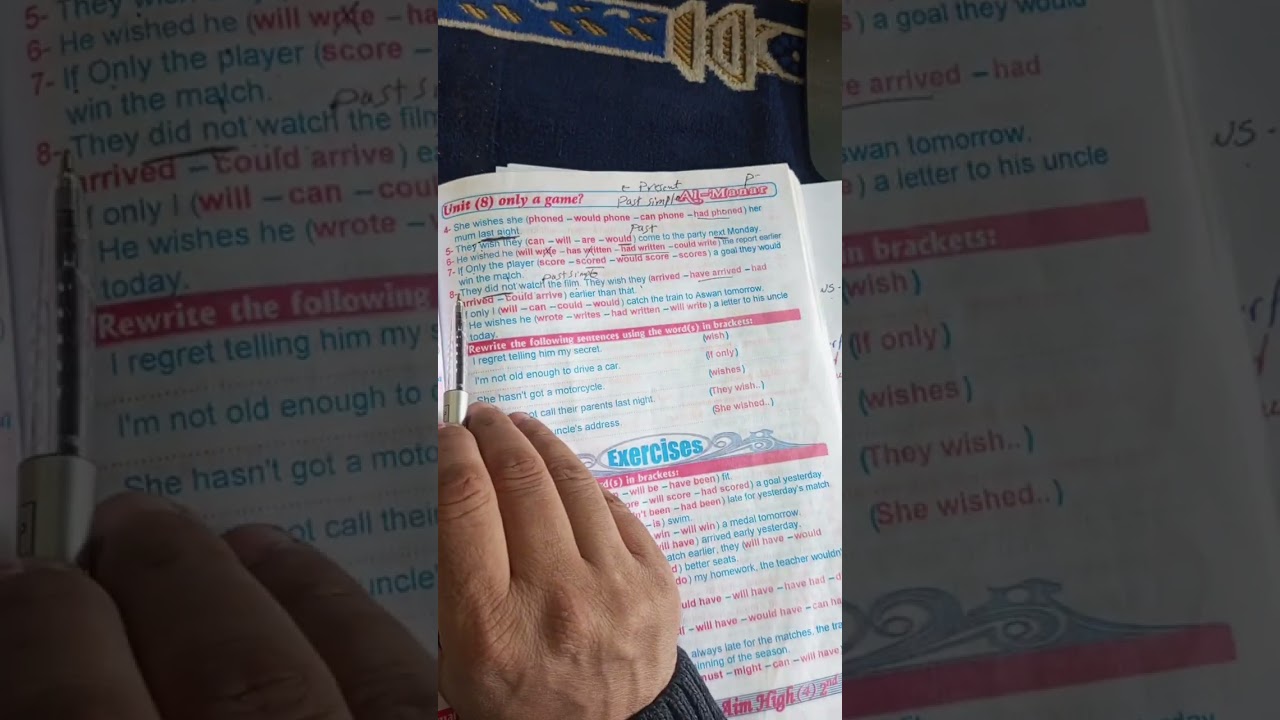 ← Present P-
Unit (8) only a game? Past simple Al-Manar
4- She wishes she (phoned – would phone – can phone – had phoned) her
mum last night. Past
5- They wish they (can – will – are – would) come to the party next Monday.
6- He wished he (will write – has written – had written – could write) the report earlier.
7- If Only the player (score – scored – would score – scores) a goal they would
win the match. past simple
8- They did not watch the film. They wish they (arrived – have arrived – had
arrived – could arrive) earlier than that.
f only I (will – can – could – would) catch the train to Aswan tomorrow.
He wishes he (wrote – writes – had written – will write) a letter to his uncle
today.
Rewrite the following sentences using the word(s) in brackets:
I regret telling him my secret. (wish)
I'm not old enough to drive a car. (If only)
She hasn't got a motorcycle. (wishes)
ot call their parents last night. (They wish..)
uncle's address. (She wished..)
Exercises
rd(s) in brackets:
– will be – have been) fit.
ore – will score – had scored) a goal yesterday.
n't been – had been) late for yesterday's match.
– is) swim.
win – will win) a medal tomorrow.
ill have) arrived early yesterday.
atch earlier, they (will have – would
d) better seats.
do) my homework, the teacher wouldn'
uld have – will have – have had – d
– will have – would have – can ha
always late for the matches, the tra
inning of the season.
must – might – can – will have
Aim High (4) 2nd